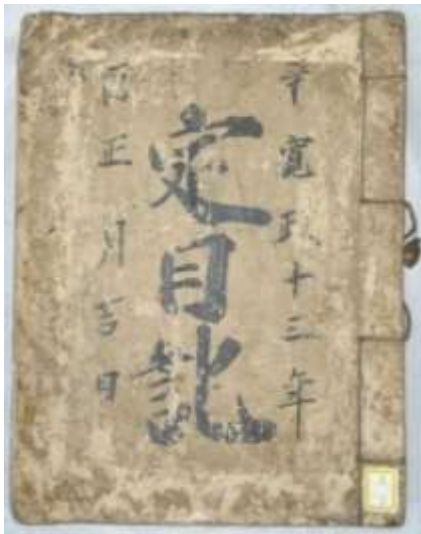 辛寛政十三年
定目記
酉正月吉日